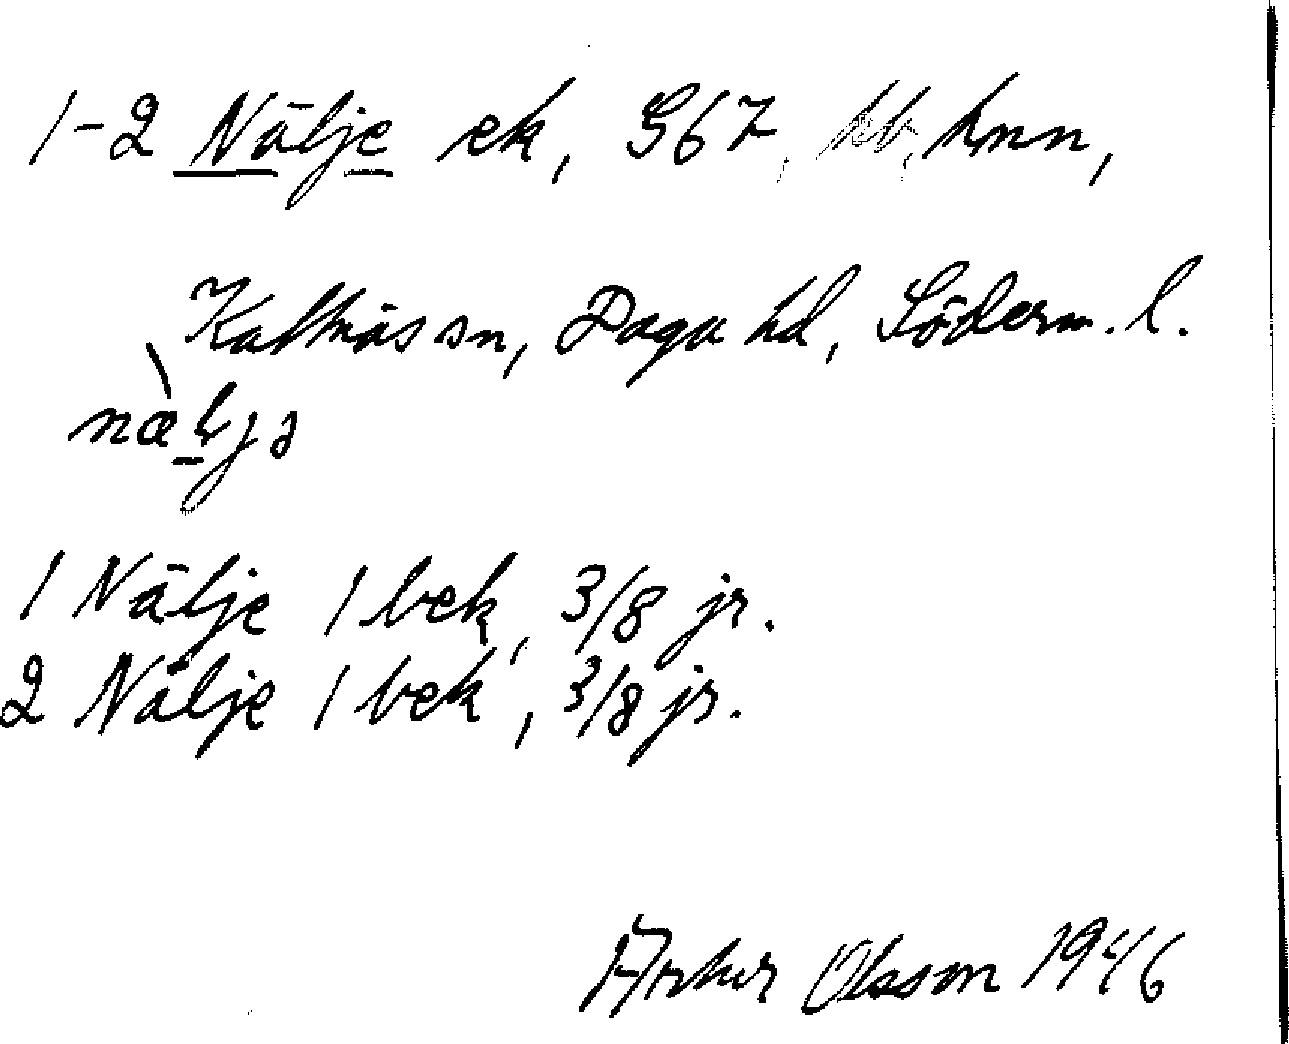 1-2 Nälje ek, G67, kb, hmn,
Kattnäs sn, Daga hd, Söderm. l.
nælja
1 Nälje 1 bek, 3/8 jr.
2 Nälje 1 bek, 3/8 jr.
Arthur Olsson 1946